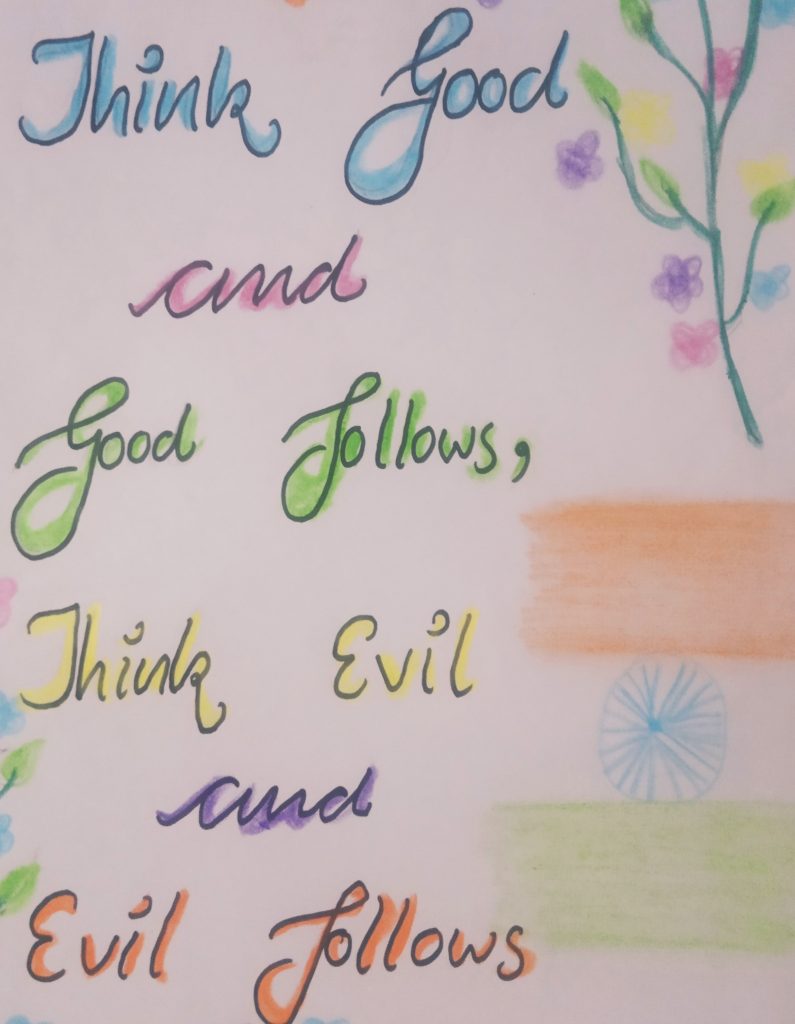 Think Good
and
Good Follows,
Think Evil
and
Evil Follows